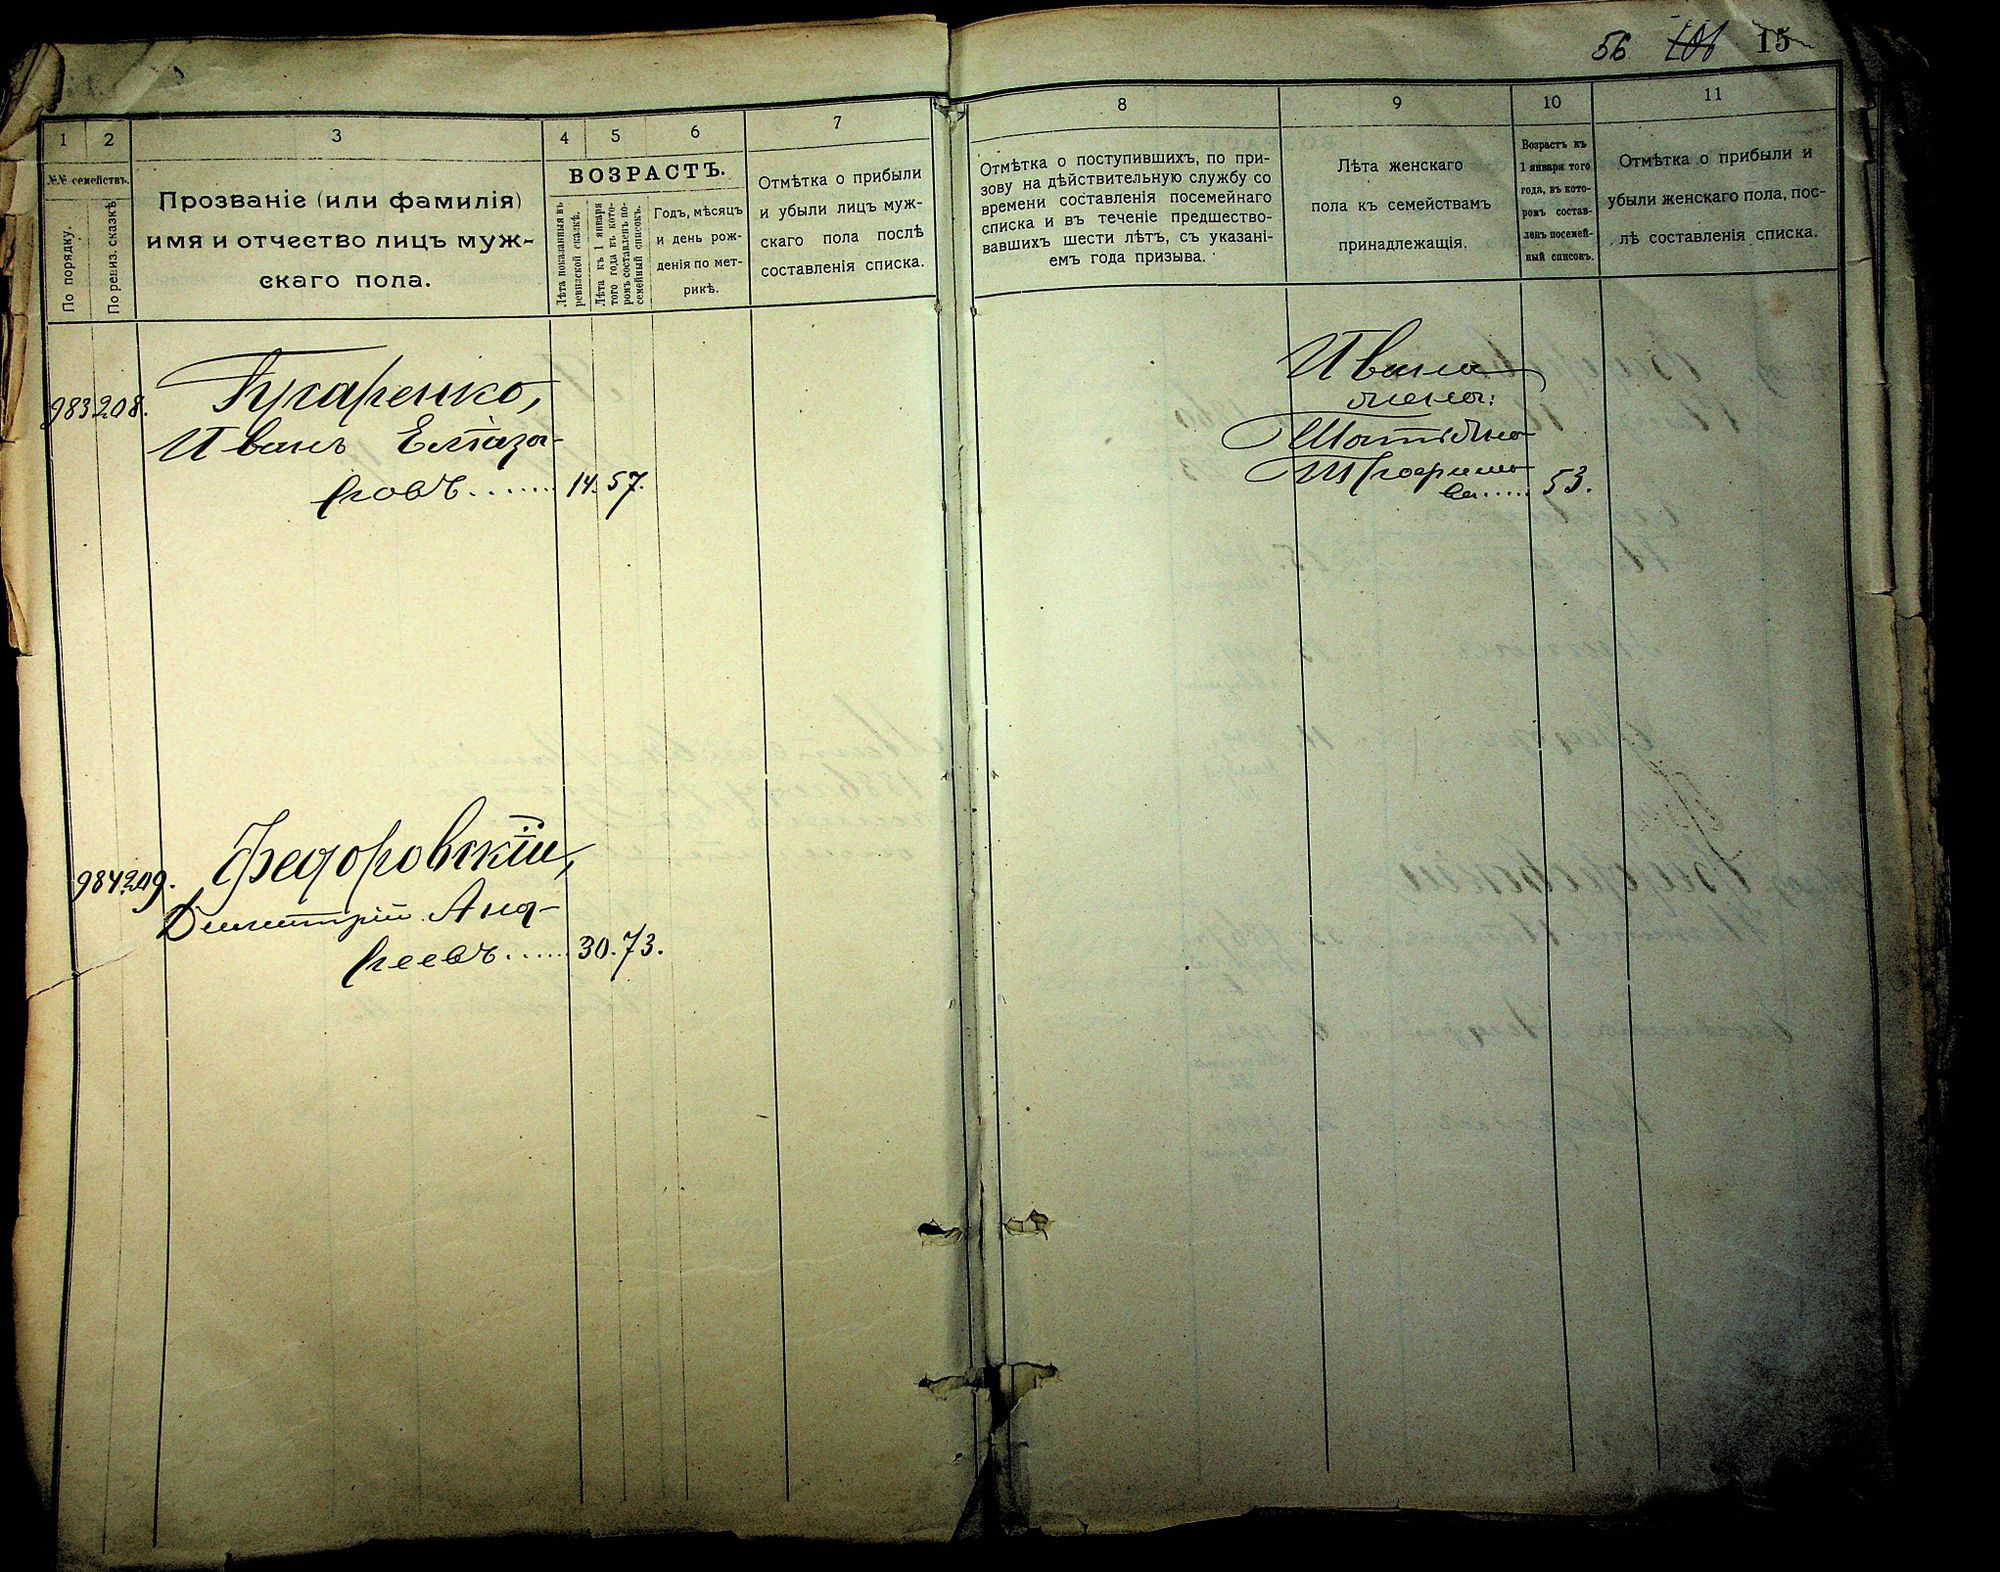 56 106 15
1
2
3
4
5
6
7
№№ семействъ.
По порядку.
По ревиз. сказкѣ
Прозваніе (или фамилія)
имя и отчество лицъ муж-
скаго пола.
ВОЗРАСТЪ.
Лѣта показанныя въ
ревизской сказкѣ.
Лѣта къ 1 января
того года въ кото-
ромъ составленъ по-
семейный списокъ.
Годъ, мѣсяцъ
и день рож-
денія по мет-
рикѣ.
Отмѣтка о прибыли
и убыли лицъ муж-
скаго пола послѣ
составленія списка.
983 208.
Иванъ Елиза-
ровъ....... 14. 57.
984 209.
Федоровскій,
Димитрій Анд-
реевъ...... 30. 73.
8
9
10
11
Отмѣтка о поступившихъ, по при-
зову на дѣйствительную службу со
времени составленія посемейнаго
списка и въ теченіе предшество-
вавшихъ шести лѣтъ, съ указані-
емъ года призыва.
Лѣта женскаго
пола къ семействамъ
принадлежащія.
Возрастъ къ
1 января того
года, въ кото-
ромъ состав-
ленъ посемей-
ный списокъ.
Отмѣтка о прибыли и
убыли женскаго пола, пос-
лѣ составленія списка.
Ивана
жена:
Трофимо
ва..... 53.